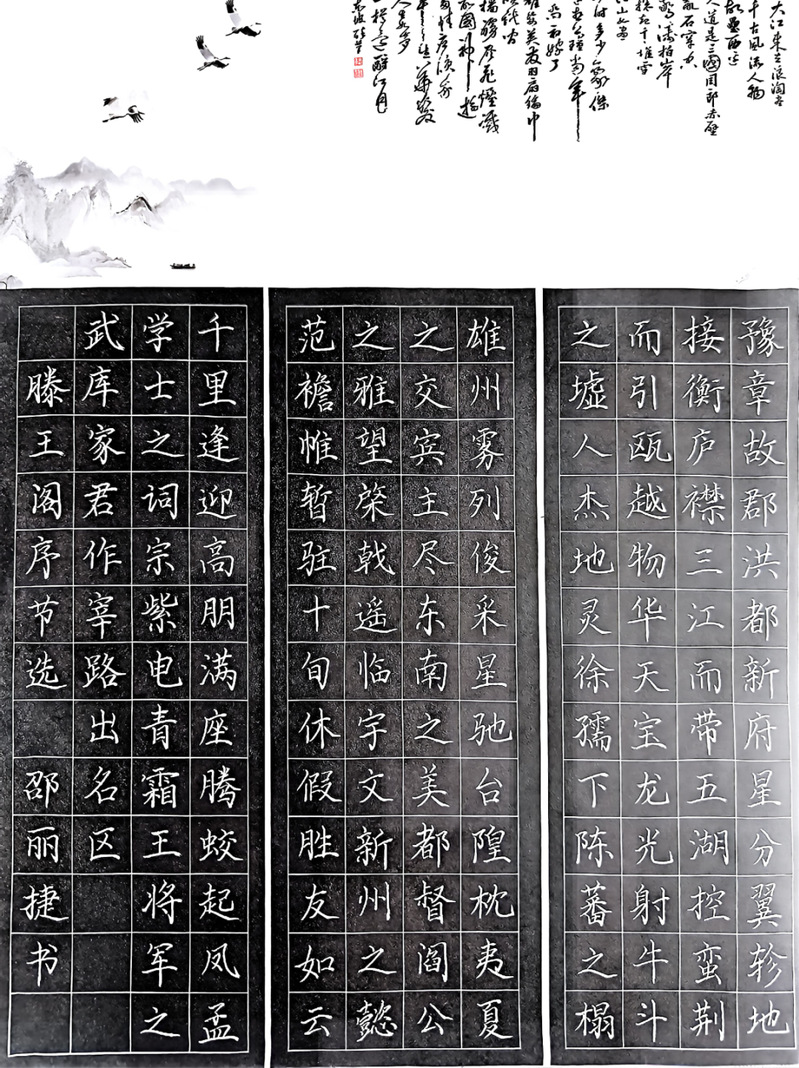 大江东去浪淘尽
千古风流人物
故垒西边
人道是三國周郎赤壁
乱石穿空
涛拍岸
卷起千堆雪
江山如画
时多少豪傑
公瑾當年
初嫁了
雄姿英发羽扇纶巾
谈笑
樯橹灰飞煙滅
故國神游
多情应笑我
早生華发
一樽还酹江月
豫章故郡洪都新府星分翼轸地
接衡庐襟三江而带五湖控蛮荆
而引瓯越物华天宝龙光射牛斗
之墟人杰地灵徐孺下陈蕃之榻
雄州雾列俊采星驰台隍枕夷夏
之交宾主尽东南之美都督阎公
之雅望棨戟遥临宇文新州之懿
范襜帷暂驻十旬休假胜友如云
千里逢迎高朋满座腾蛟起凤孟
学士之词宗紫电青霜王将军之
武库家君作宰路出名区
滕王阁序节选 邵丽捷书